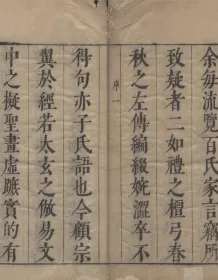 余每流覽百氏家言竊所
致疑者二如禮之檀弓春
秋之左傳編綴婉澀卒不
序一
得句亦子氏語也今顧宗
翼於經若太玄之倣易文
中之擬聖畫虛蹠實的有